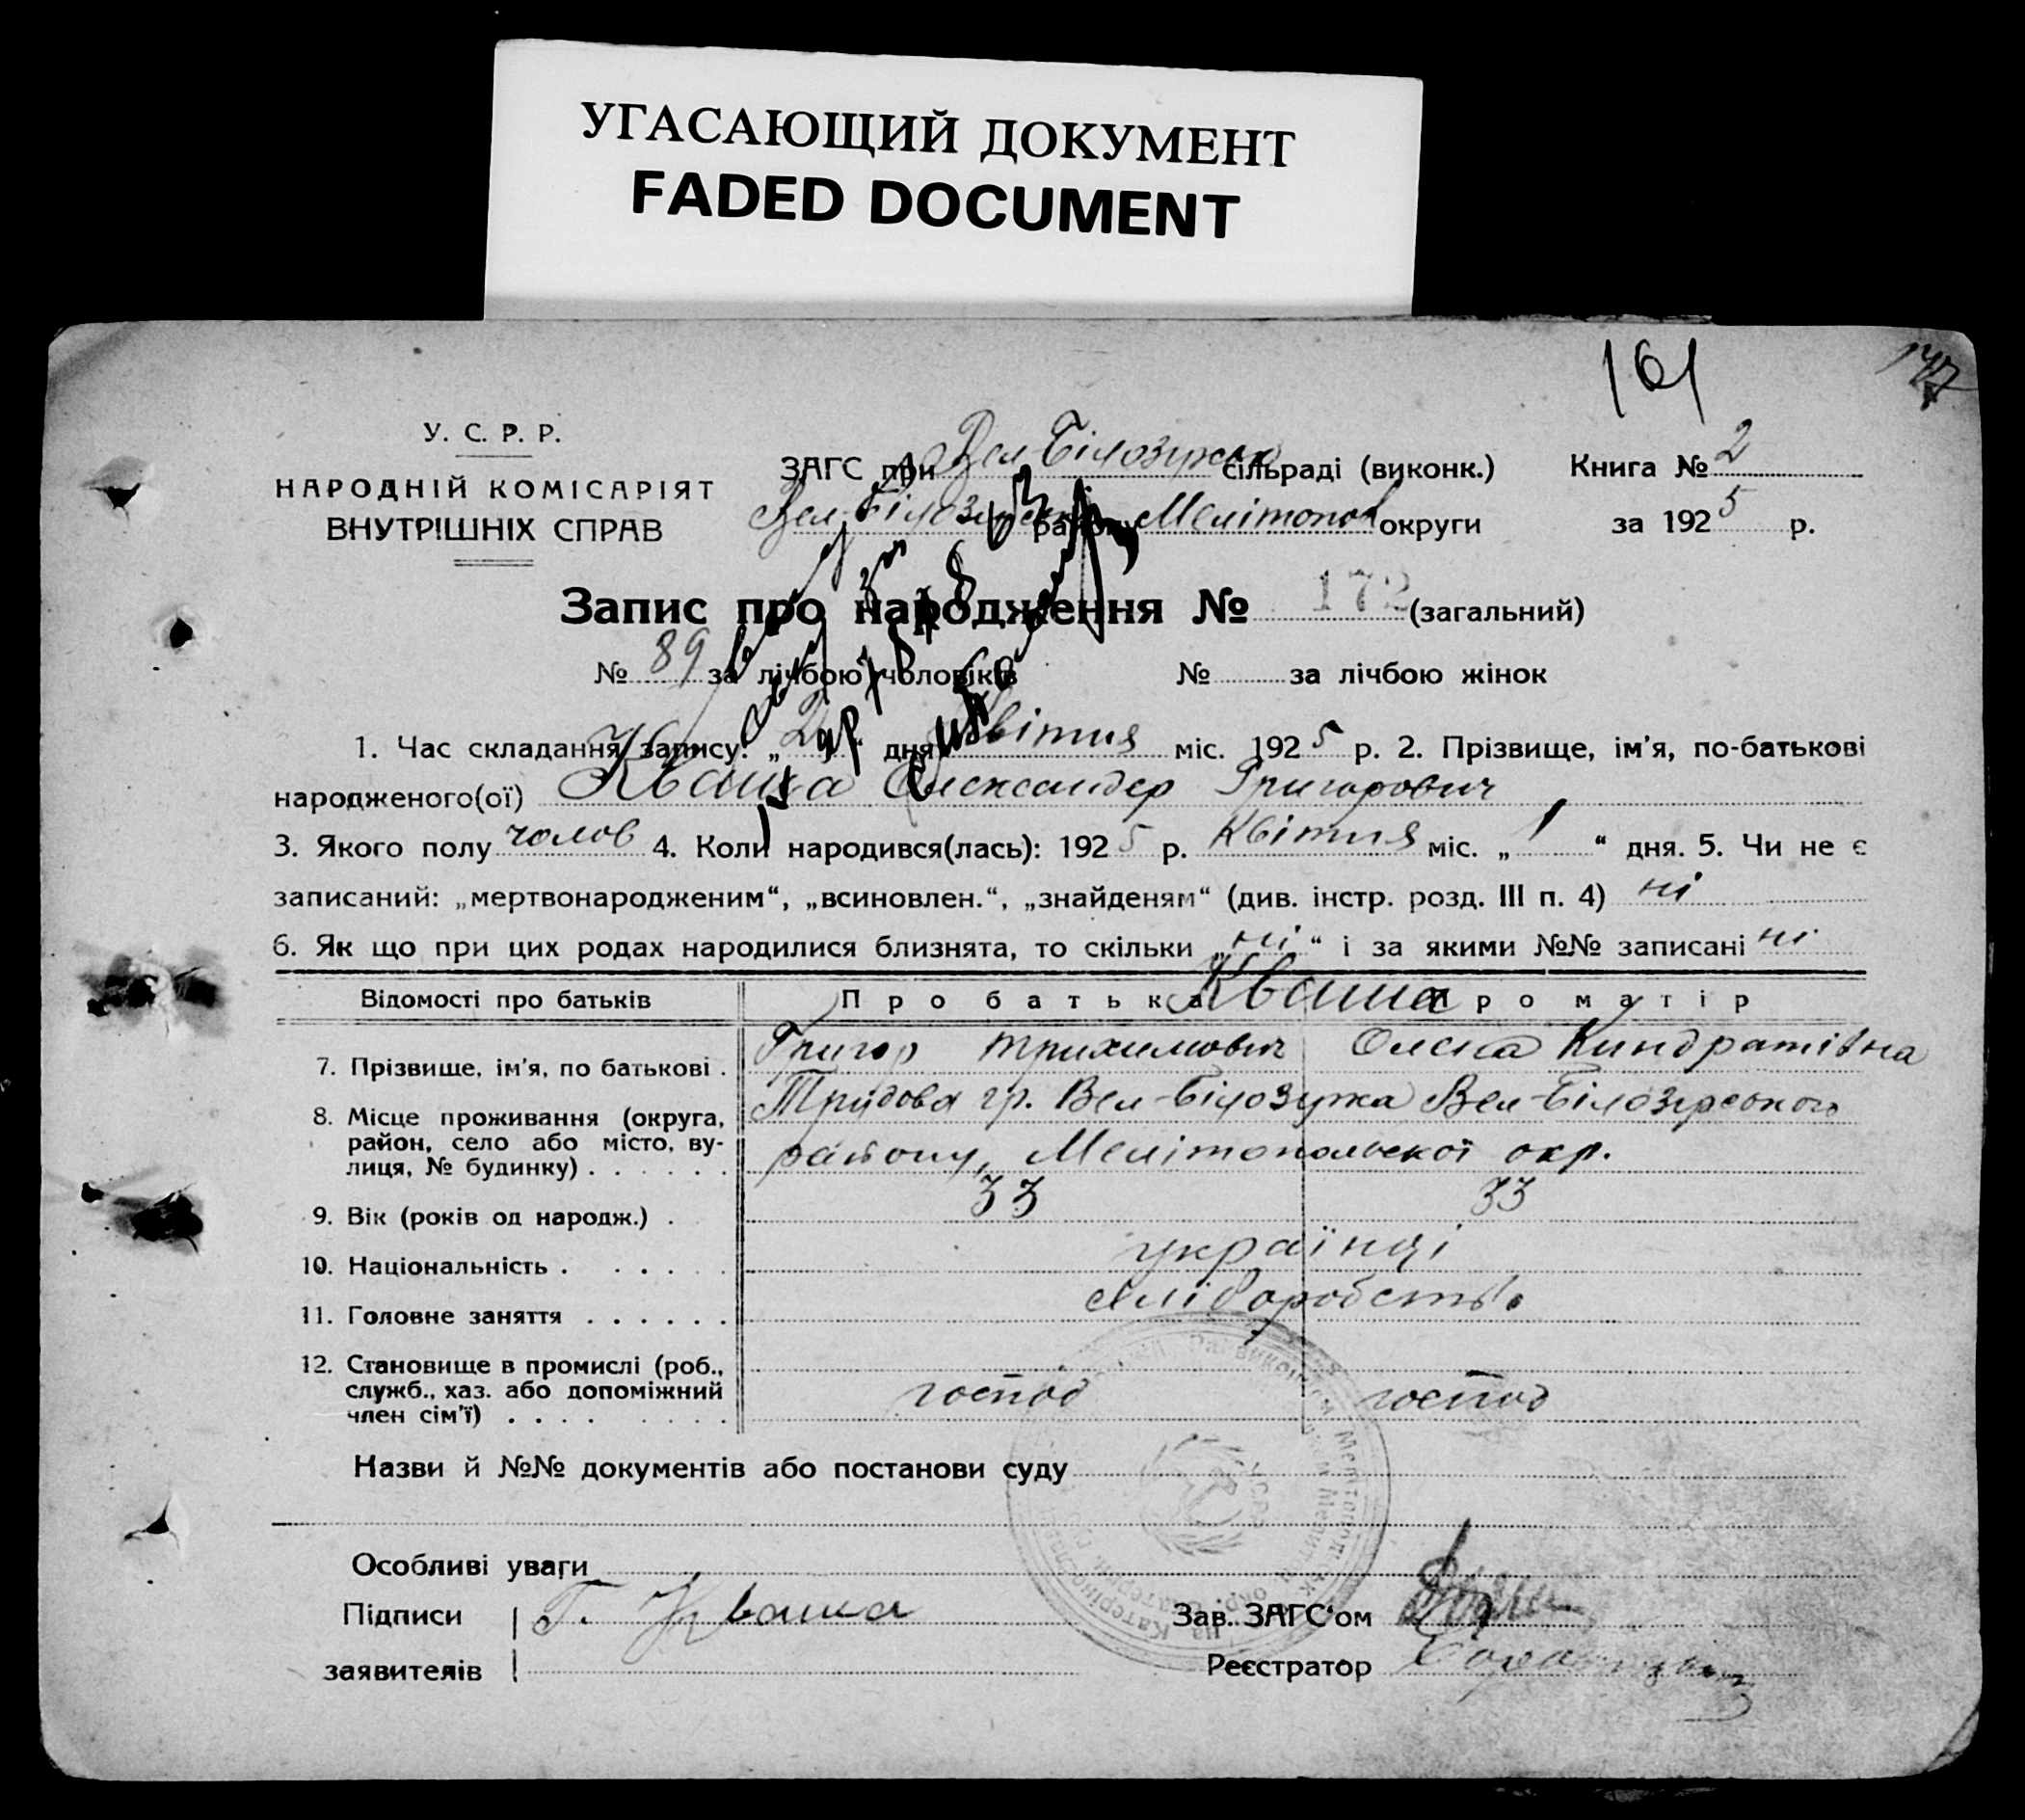 УГАСАЮЩИЙ ДОКУМЕНТ
FADED DOCUMENT
161
147
У. С. Р. Р.
НАРОДНІЙ КОМІСАРІЯТ
ВНУТРІШНІХ СПРАВ
ЗАГС при Вел-Білозирско сільраді (виконк.)
Книга № 2
Вел-Білозирськ району Мелітопол округи
за 1925 р.
Запис про народження № 172 (загальний)
№ 89 за лічбою чоловіків № за лічбою жінок
1. Час складання запису: „2“ дня Квітня міс. 1925 р. 2. Прізвище, ім'я, по-батькові
народженого(ої) Кваша Олександер Григорович
3. Якого полу чолов 4. Коли народився(лась): 1925 р. Квітня міс. „1“ дня. 5. Чи не є
записаний: „мертвонародженим“, „всиновлен.“, „знайденям“ (див. інстр. розд. III п. 4) ні
6. Як що при цих родах народилися близнята, то скільки „ні“ і за якими №№ записані ні
Відомості про батьків Про батька Про матір
Кваша
7. Прізвище, ім'я, по батькові . Григор Трихимович Олена Киндратівна
8. Місце проживання (округа, район, село або місто, вулиця, № будинку) . . . . . .
Трудова гр. Вел-Білозирка Вел-Білозирського
району, Мелітопольської окр.
9. Вік (років од народж.) . 33 33
10. Національність . . . . . українці
11. Головне заняття . . . . . . хліборобств.
12. Становище в промислі (роб., служб., хаз. або допоміжний член сім'ї) . . . . . . . .
господ господ
Назви й №№ документів або постанови суду
Особливі уваги
Підписи заявителів Г. Кваша
Зав. ЗАГС'ом
Реєстратор